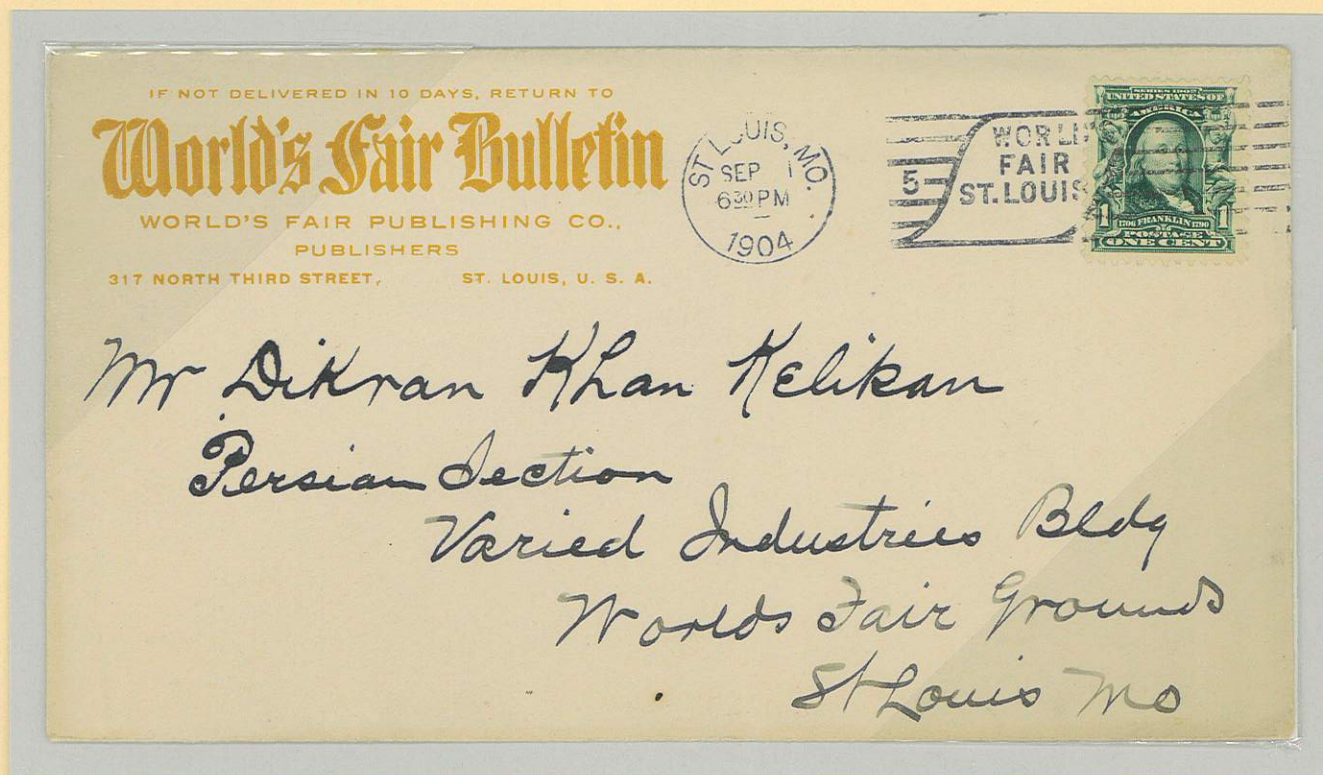 IF NOT DELIVERED IN 10 DAYS, RETURN TO
World's Fair Bulletin
WORLD'S FAIR PUBLISHING CO.,
PUBLISHERS
317 NORTH THIRD STREET, ST. LOUIS, U. S. A.
ST LOUIS, MO.
SEP 1
6 30 PM
1904
5
WORLD
FAIR
ST. LOUIS
SERIES 1902
UNITED STATES OF
AMERICA
1 1706 FRANKLIN 1790 1
POSTAGE
ONE CENT
Mr Dikran Khan Kelikan
Persian Section
Varied Industries Bldg
Worlds Fair Grounds
St Louis Mo